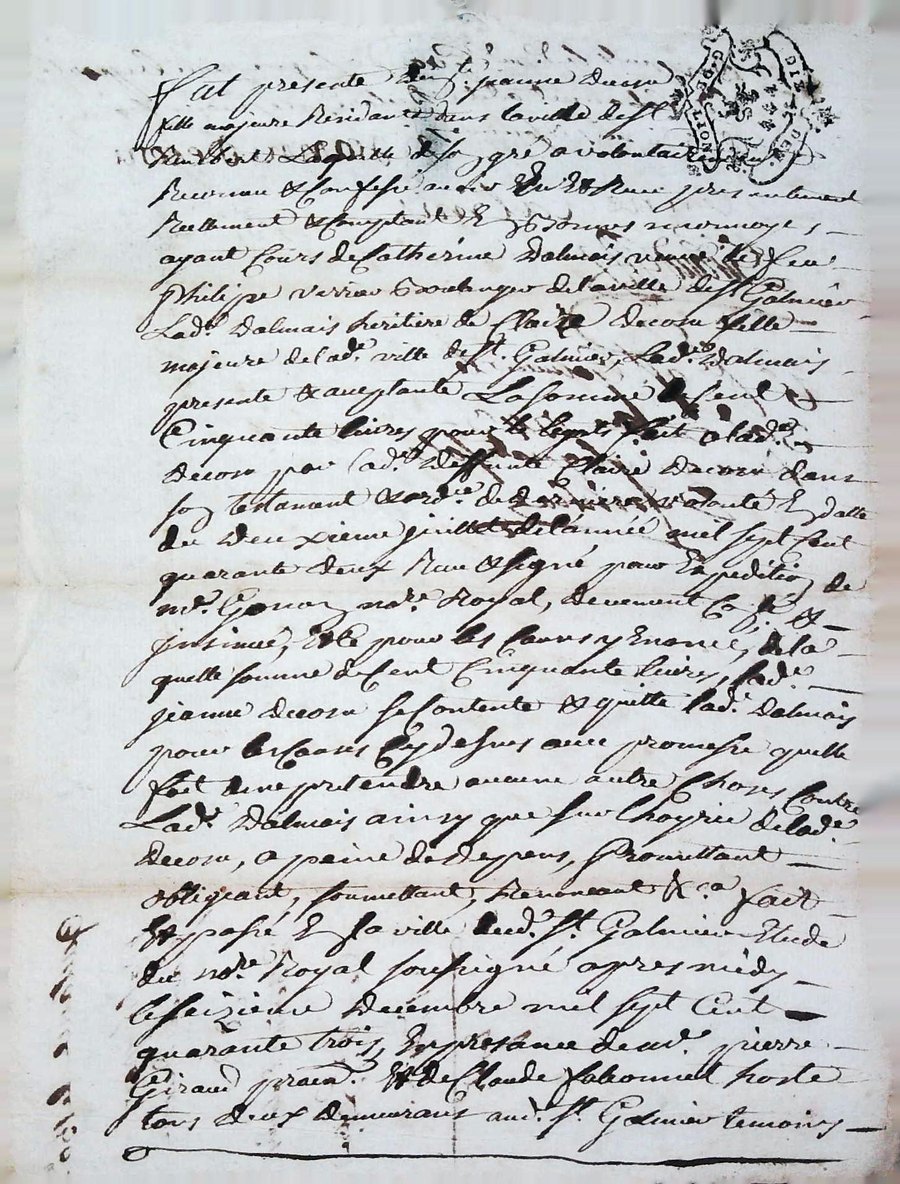 fut presente dem.lle jeanne Decosu
fille majeure Residante dans la ville de St
Rambert Laquelle de so gré a volontairement
Reconnu & Confessé avoir Eu & Receu presentement
Reellement & Comptant En bonnes monnoye
ayant Cours de Catherine Dalmais veuve de feu
Philipe verrier boulenger de la ville de St Galmier
Lad.e Dalmais heritiere de Claire Decosu fille
majeure de lad.e ville de St. Galmier, Lad.e Dalmais
presente & aceptante La somme de Cent
Cinquante livres pour le legats fait a lad.e
Decosu par lad.e deffunte Claire Decosu dans
so testament & ord.ce de derniere volonté En datte
du Deuxieme juillet de l'année mil sept Cent
quarante deux Receu & signé pour Expeditio de
me. no.re Royal, deuement &
jnsinué, & Ce pour les Causes y Enoncé, de la
quelle somme de Cent Cinquante livres, lad.e
jeanne Decosu se Contente & quitte lad.e Dalmais
pour les Causes Cy dessus avec promesse quelle
fait de ne pretendre aucune autre Choses Contre
Lad.e Dalmais ainsy que sur lhoyrie de lad.e
Decosu, a peine de depens, Promettant
obligeant, soumettant, Renonceant &.ca fait
& passé En la ville dud. St. Galmier Etude
du no.re Royal soussigné apres midy
le seizieme Decembre mil sept Cent
quarante trois, En presance de me. pierre
Giraud & de Claude hoste
tous deux demeurans aud. St. Galmier temoins